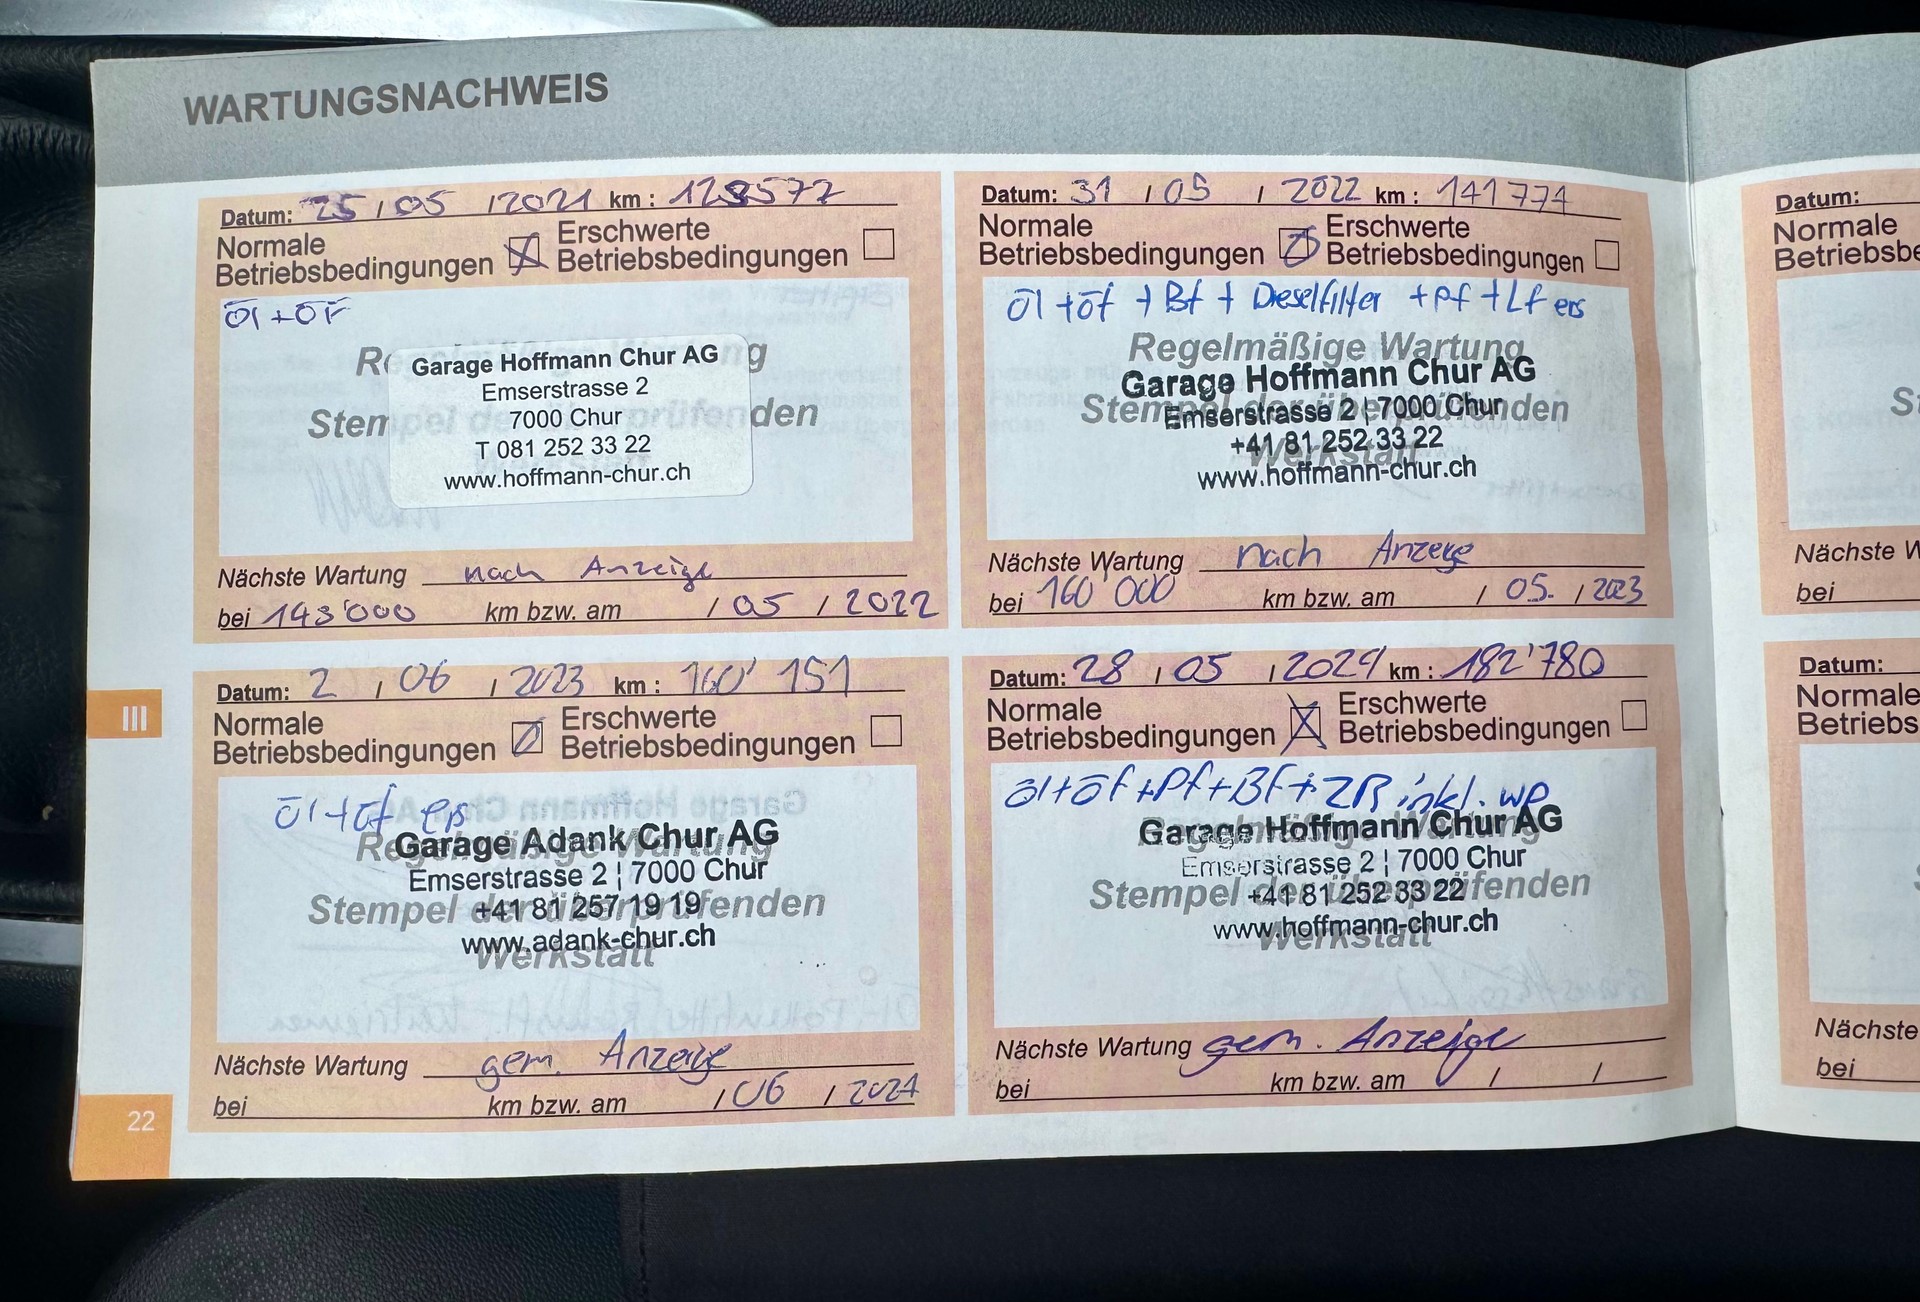 WARTUNGSNACHWEIS
Datum: 25 / 05 / 2021 km : 128577
Normale Betriebsbedingungen Erschwerte Betriebsbedingungen
Öl + ÖF
Garage Hoffmann Chur AG
Emserstrasse 2
7000 Chur
T 081 252 33 22
www.hoffmann-chur.ch
Nächste Wartung nach Anzeige
bei 143'000 km bzw. am / 05 / 2022
Datum: 31 / 05 / 2022 km : 141 771
Normale Betriebsbedingungen Erschwerte Betriebsbedingungen
Öl + öf + Bf + Dieselfilter + Pf + Lf ers
Regelmäßige Wartung
Garage Hoffmann Chur AG
Stempel der überprüfenden
Emserstrasse 2 | 7000 Chur
+41 81 252 33 22
Werkstatt
www.hoffmann-chur.ch
Nächste Wartung nach Anzeige
bei 160'000 km bzw. am / 05. / 2023
Datum: 2 / 06 / 2023 km : 160'151
Normale Betriebsbedingungen Erschwerte Betriebsbedingungen
Öl + öf ers
Garage Adank Chur AG
Regelmäßige Wartung
Emserstrasse 2 | 7000 Chur
Stempel der überprüfenden
+41 81 257 19 19
www.adank-chur.ch
Werkstatt
Nächste Wartung gem. Anzeige
bei km bzw. am / 06 / 2024
Datum: 28 / 05 / 2024 km : 182'780
Normale Betriebsbedingungen Erschwerte Betriebsbedingungen
Öl + öf + Pf + BF + ZR inkl. WP
Garage Hoffmann Chur AG
Regelmäßige Wartung
Emserstrasse 2 | 7000 Chur
Stempel der überprüfenden
+41 81 252 33 22
www.hoffmann-chur.ch
Werkstatt
Nächste Wartung gem. Anzeige
bei km bzw. am / /
III
22
Datum:
Normale
Nächste
bei
Datum:
Normale
Nächste
bei